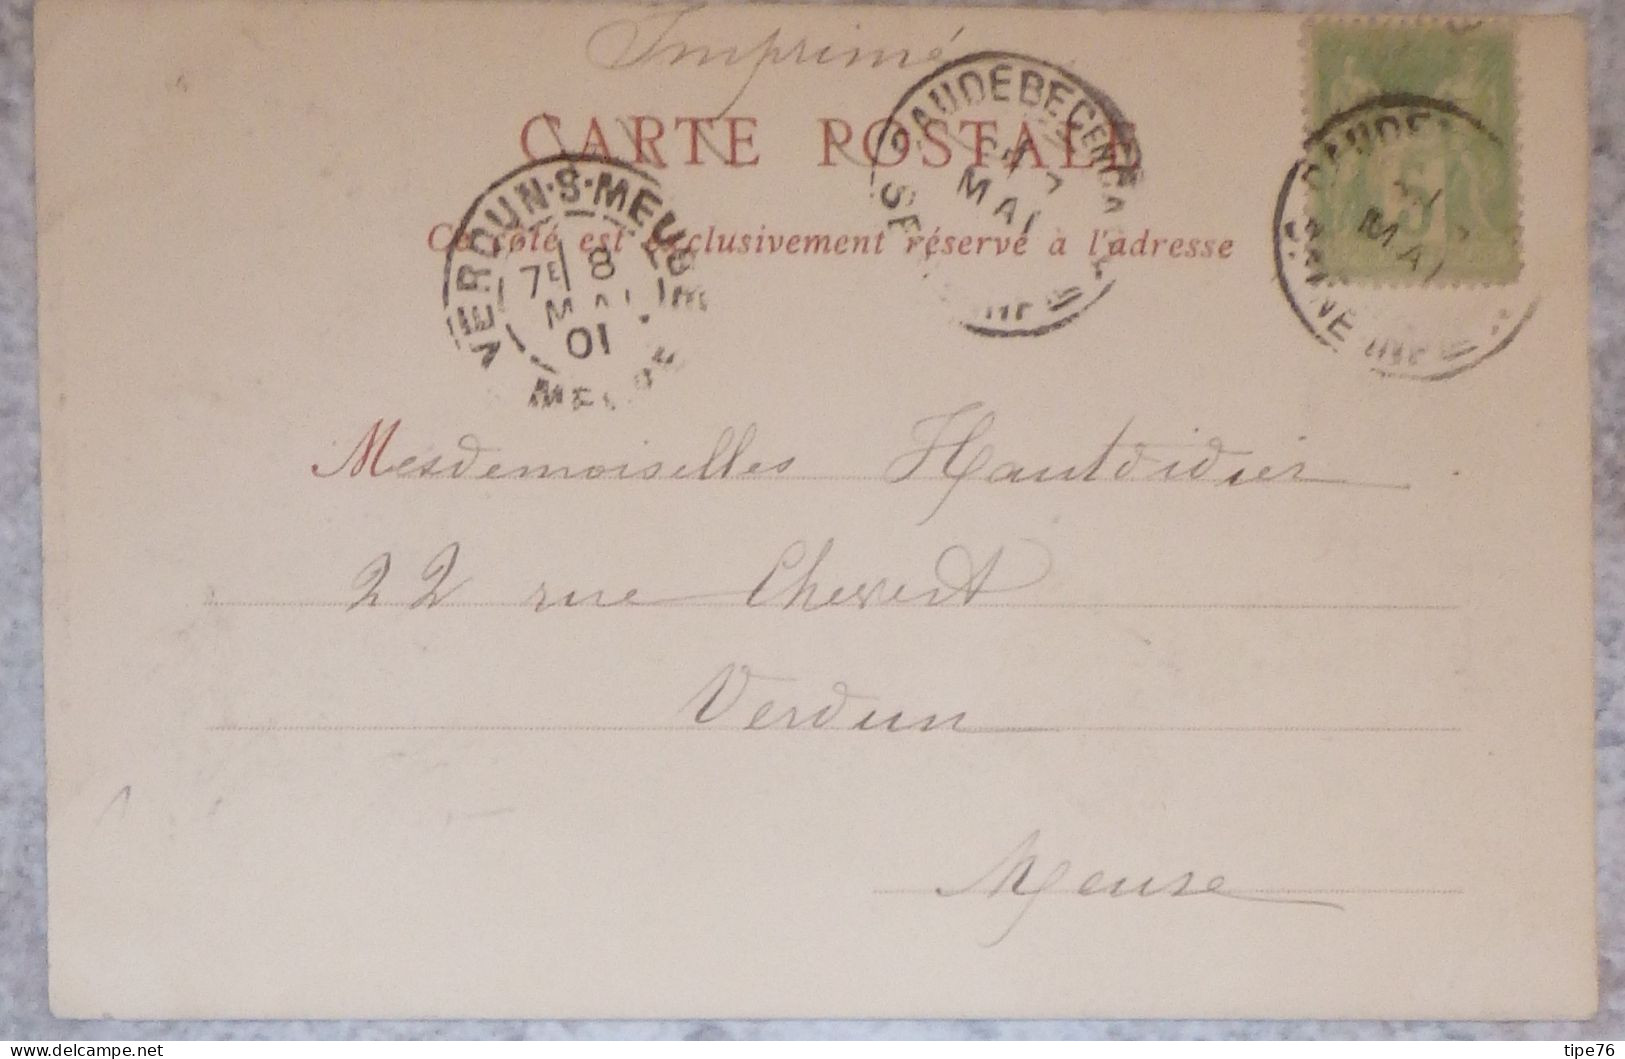 Imprimé
CARTE POSTALE
Ce côté est exclusivement réservé à l'adresse
CAUDEBEC EN CAUX
MAI
VERDUN-S-MEUSE
7E 8
MAI
01
MEUSE
CAUDEBEC
MAI
SEINE INF
5
Mesdemoiselles Hautdidier
22 rue Chevert
Verdun
Meuse
delcampe.net
tipe76